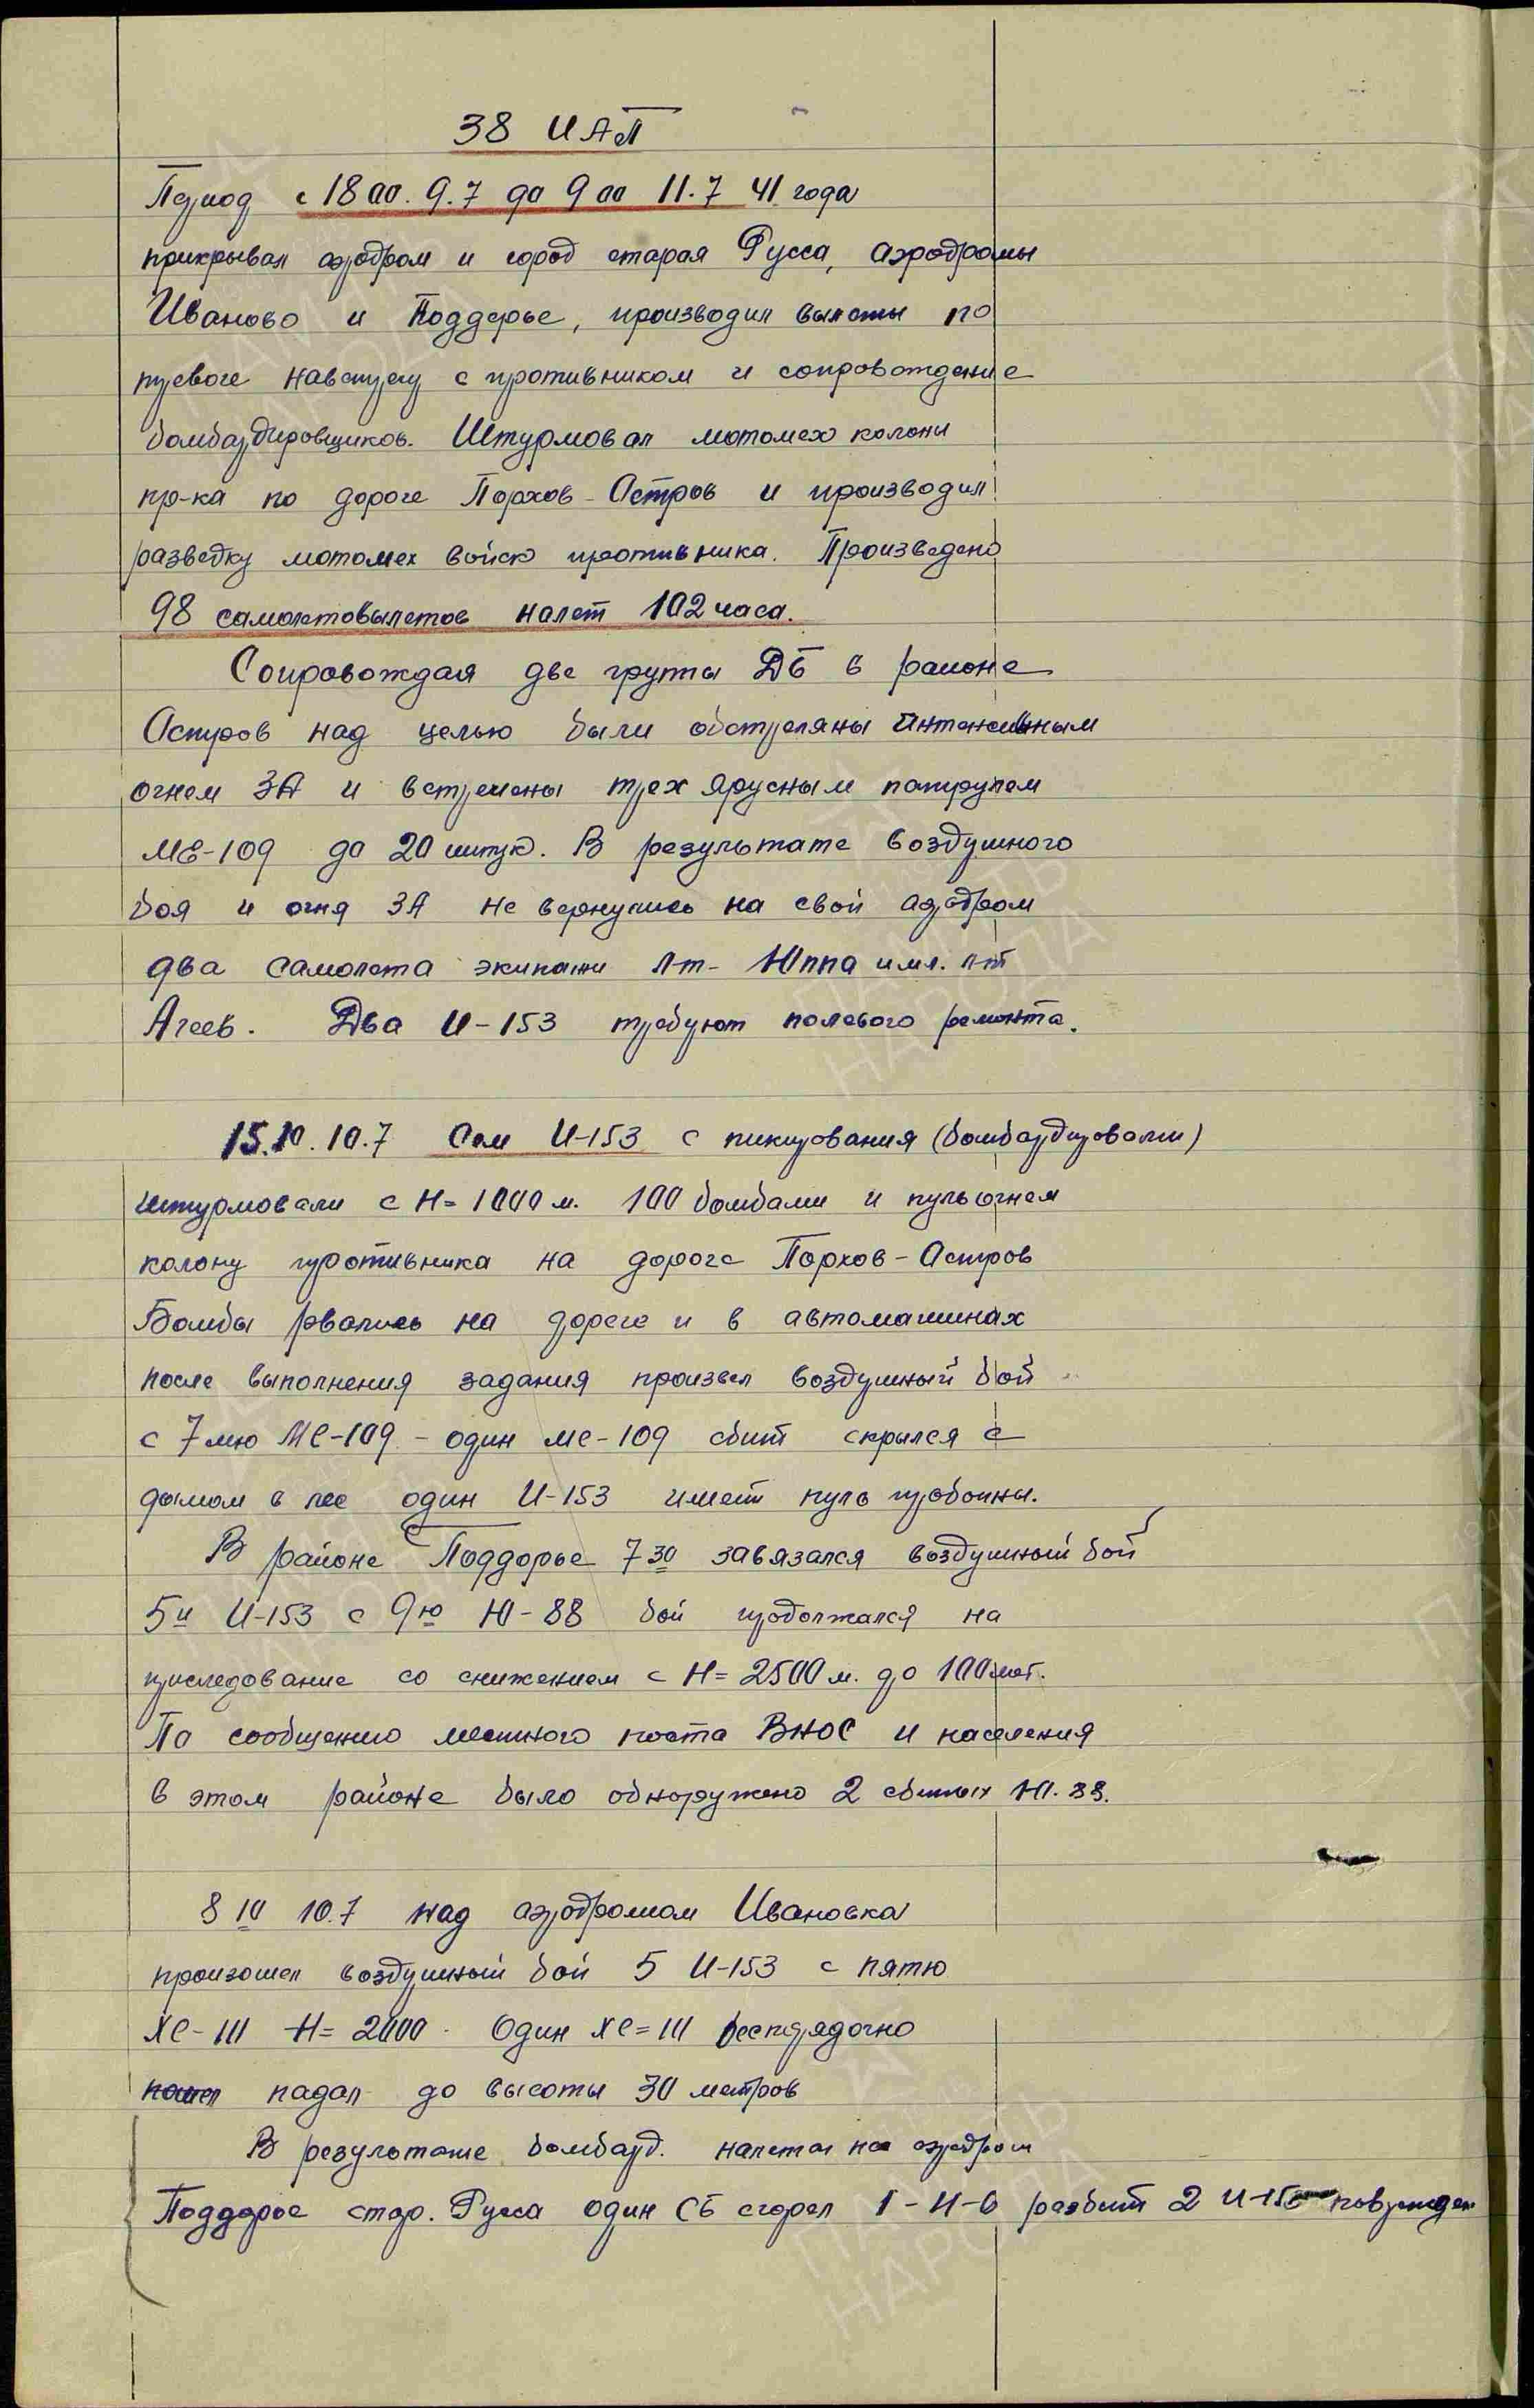 38 ИАП
Период с 18 00. 9.7 до 9 00 11.7 41 года
прикрывал аэродром и город старая Русса, аэродромы
Иваново и Поддерье, производил вылеты по
тревоге навстречу с противником и сопровождение
бомбардировщиков. Штурмовал мотомех колоны
пр-ка по дороге Порхов - Остров и производил
разведку мотомех войск противника. Произведено
98 самолетовылетов налет 102 часа.
Сопровождая две группы ДБ в районе
Остров над целью были обстреляны интенсивным
огнем ЗА и встречены трех ярусным патрулем
МЕ-109 до 20 штук. В результате воздушного
боя и огня ЗА не вернулись на свой аэродром
два самолета экипажи л-т- Юппа и мл. л-т
Агеев. Два И-153 требуют полевого ремонта.
15.10. 10.7 Сем И-153 с пикирования (бомбардировали)
штурмовали с Н= 1000 м. 100 бомбами и пульогнем
колону противника на дороге Порхов - Остров
Бомбы рвались на дороге и в автомашинах
после выполнения задания произвел воздушный бой
с 7мю МЕ-109 - один ме-109 сбит скрылся с
дымом в лес один И-153 имеет пуль пробоины.
В районе Поддорье 7 30 завязался воздушный бой
5и И-153 с 9ю Ю-88 бой продолжался на
приследование со снижением с Н= 2500 м. до 100 мет.
По сообщению местного поста ВНОС и населения
в этом районе было обноружено 2 сбитых Ю. 88.
8 10 10.7 над аэродромом Ивановка
произошел воздушный бой 5 И-153 с пятю
ХЕ-111 Н= 2000. Один ХЕ=111 беспорядочно
падал до высоты 30 метров
В результате бомбард. налета на аэродром
Поддорье стар. Русса один СБ сгорел 1 - И-6 разбит 2 И-15 поврежден